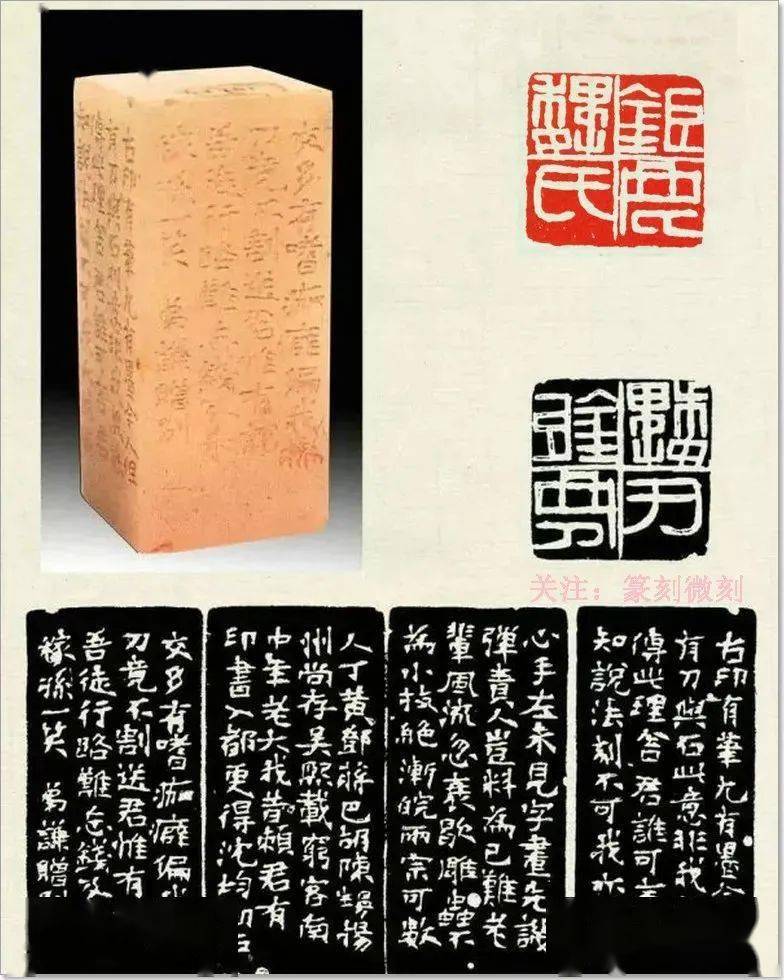 鉅鹿
魏氏
关注：篆刻微刻
古印有筆尤有墨今
有刀與石此意非我
傳此理舍君誰可
知說法刻不可我亦
心手左未見字畫先譏
彈貴人豈料為己難老
輩風流忽衰歇雕蟲不
為小技絕漸皖兩宗可數
人丁黃鄧蔣巴胡陳揚
州尚存吳熙載窮客南
中年老大我昔賴君有
印書入都更得沈均初石
交多有嗜痂癖偏
刀竟不割送君惟有
吾徒行路難忘錢及
稼孫一笑 弟謙贈別